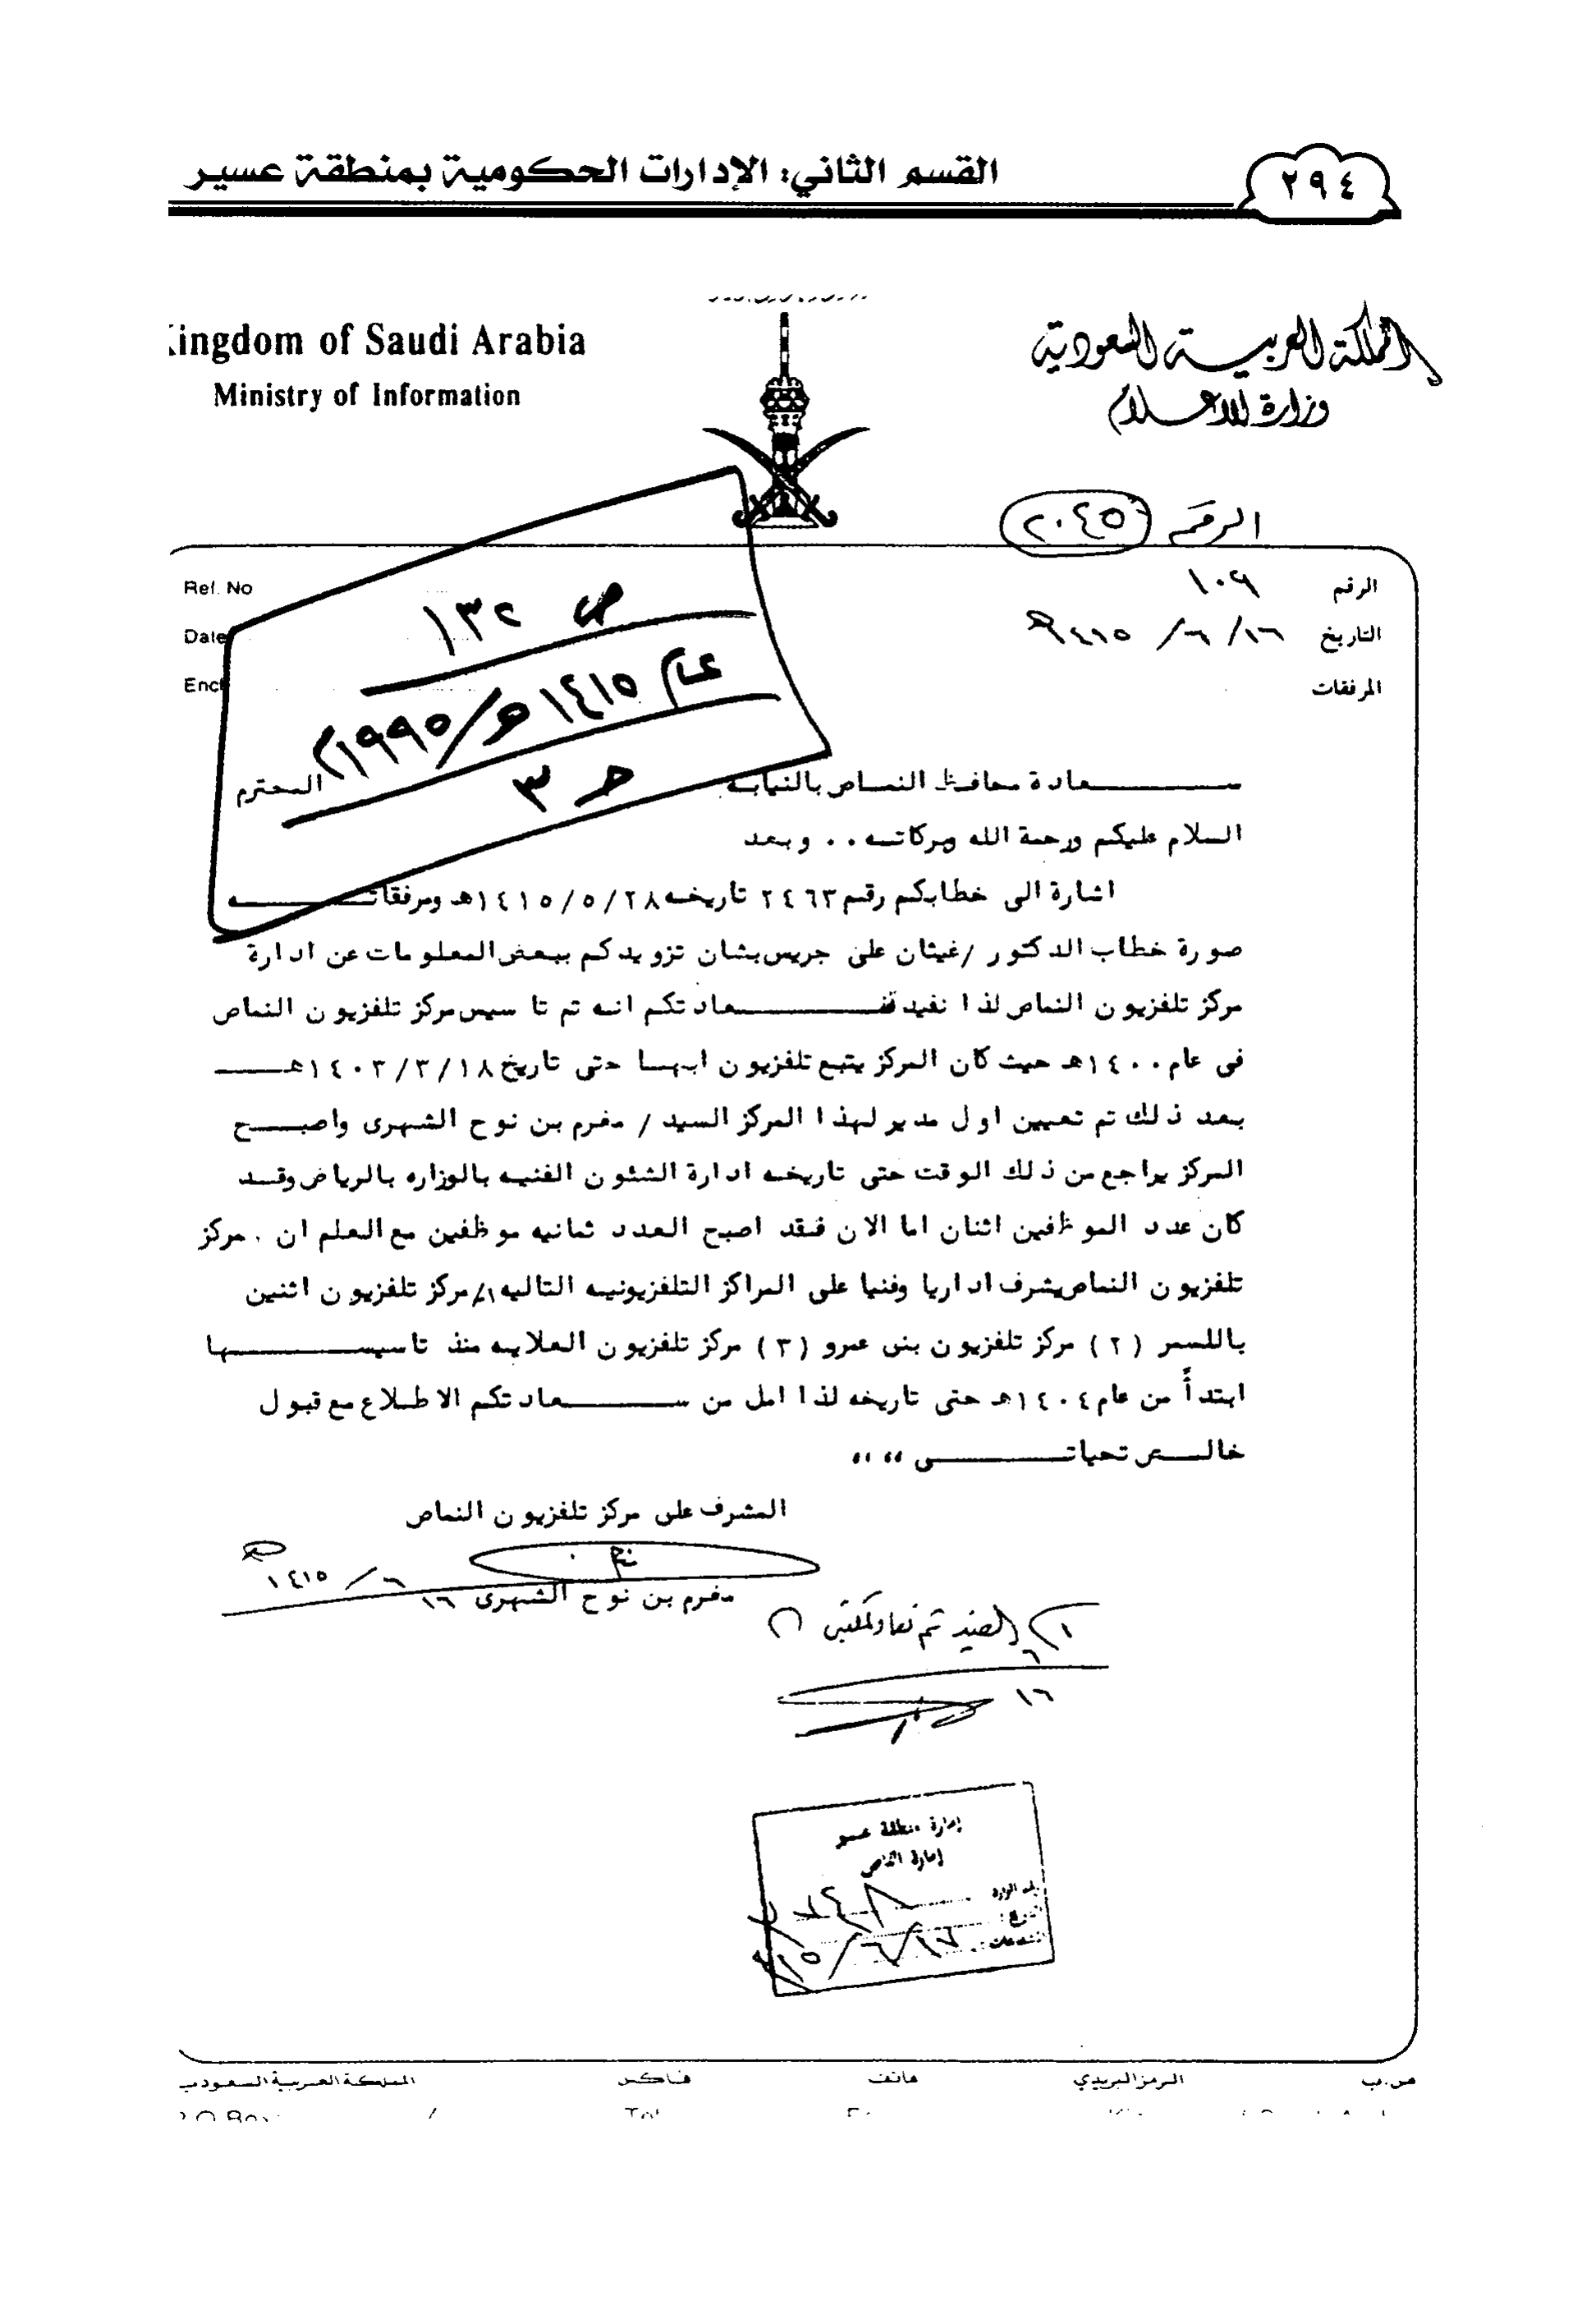 القسم الثاني: الإدارات الحكومية بمنطقة عسير
٢٩٤
Kingdom of Saudi Arabia
Ministry of Information
المملكة العربية السعودية
وزارة الاعلام
الرقم ٢٠٤٥
Ref. No
Date
Encl
الرقم ١٠٩
التاريخ ١٦ / ٦ / ١٤١٥هـ
المرفقات
ص ١٣٢
عام ١٤١٥هـ/١٩٩٥م
حـ ٣
سعادة محافظ النماص بالنيابة المحترم
السلام عليكم ورحمة الله وبركاته .. وبعد
اشارة الى خطابكم رقم ٢٤٦٣ تاريخه ١٤١٥/٥/٢٨هـ ومرفقاته
صورة خطاب الدكتور /غيثان على جريس بشان تزويدكم ببعض المعلومات عن ادارة
مركز تلفزيون النماص لذا نفيد سعادتكم انه تم تاسيس مركز تلفزيون النماص
فى عام ١٤٠٠هـ حيث كان المركز يتبع تلفزيون ابها حتى تاريخ ١٤٠٣/٣/١٨هـ
بعد ذلك تم تعيين اول مدير لهذا المركز السيد / مفرم بن نوح الشهرى واصبح
المركز يراجع من ذلك الوقت حتى تاريخه ادارة الشئون الفنيه بالوزاره بالرياض وقد
كان عدد الموظفين اثنان اما الان فقد اصبح العدد ثمانيه موظفين مع العلم ان . مركز
تلفزيون النماص يشرف اداريا وفنيا على المراكز التلفزيونيه التاليه ١/ مركز تلفزيون اثنين
باللسمر (٢) مركز تلفزيون بنى عمرو (٣) مركز تلفزيون العلايه منذ تاسيسها
ابتدأ من عام ١٤٠٤هـ حتى تاريخه لذا امل من سعادتكم الاطلاع مع قبول
خالص تحياتى ،، ،،
المشرف على مركز تلفزيون النماص
مفرم بن نوح الشهرى ١٦ / ٦ / ١٤١٥هـ
١٦
إمارة منطقة عسير
إمارة النماص
ص.ب
الرمز البريدي
هاتف
فاكس
المملكة العربية السعودية